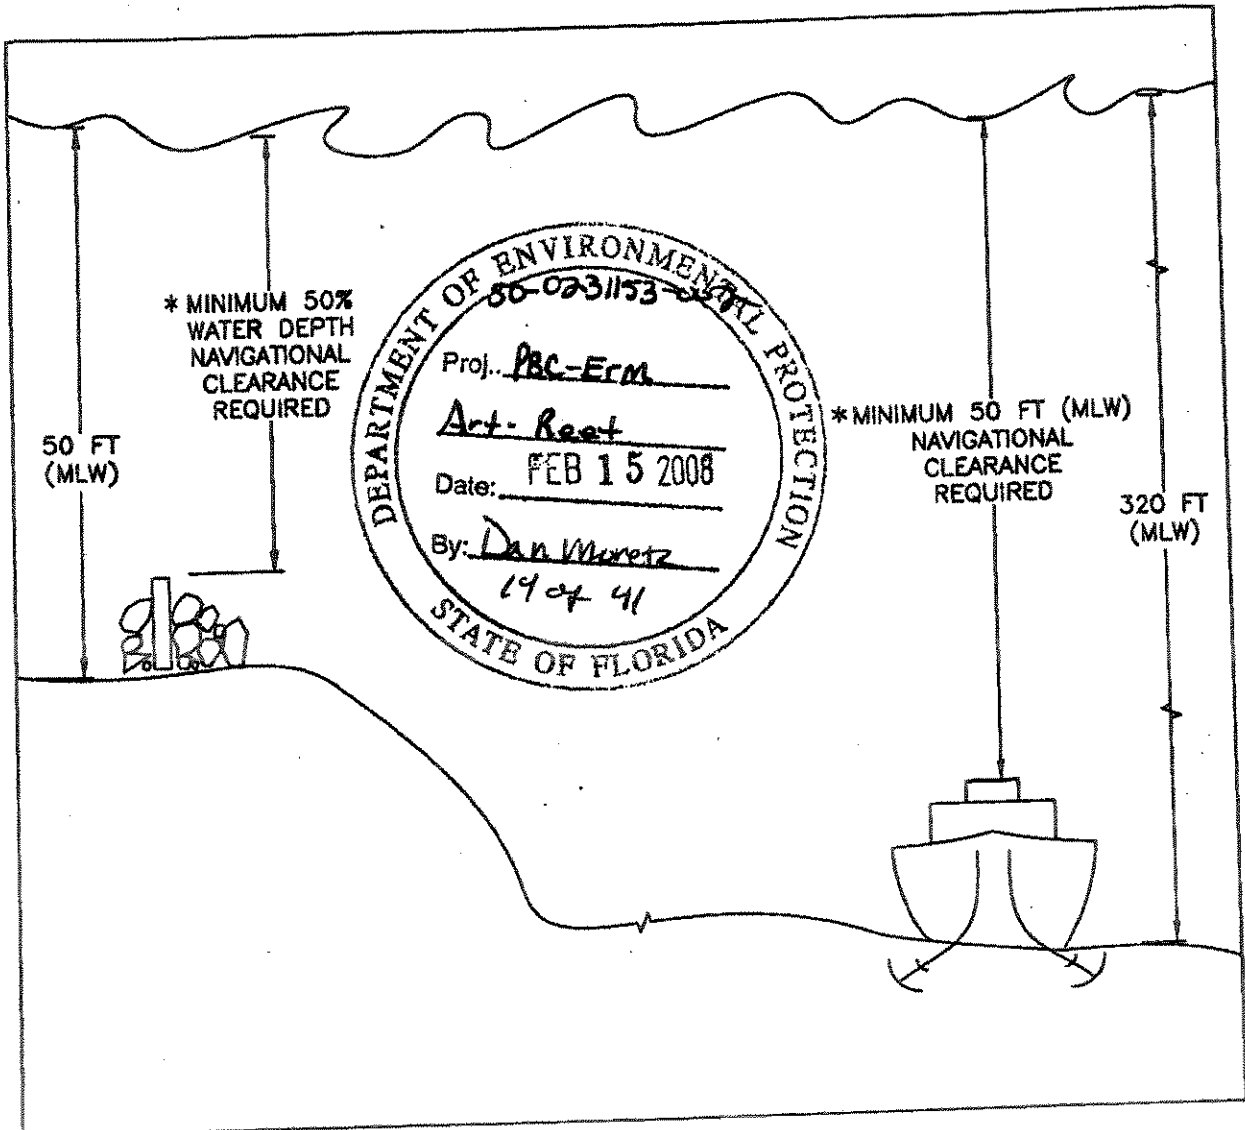 * MINIMUM 50%
WATER DEPTH
NAVIGATIONAL
CLEARANCE
REQUIRED
50 FT
(MLW)
DEPARTMENT OF ENVIRONMENTAL PROTECTION
Proj.. PBC-Erm
Art- Reef
Date: FEB 15 2008
By: Dan Moretz
19 of 41
STATE OF FLORIDA
* MINIMUM 50 FT (MLW)
NAVIGATIONAL
CLEARANCE
REQUIRED
320 FT
(MLW)